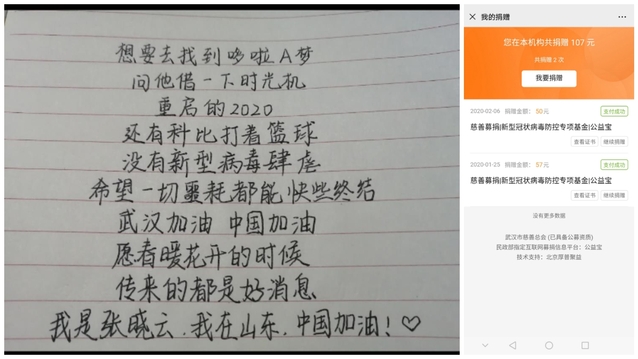 想要去找到哆啦A梦
问他借一下时光机
重启的2020
还有科比打着篮球
没有新型病毒肆虐
希望一切噩耗都能快些终结
武汉加油 中国加油
愿春暖花开的时候
传来的都是好消息
我是张晓云.我在山东.中国加油!♡
我的捐赠
您在本机构共捐赠 107 元
共捐赠 2 次
我要捐赠
2020-02-06 捐赠金额：50元 支付成功
慈善募捐|新型冠状病毒防控专项基金|公益宝
查看证书 继续捐赠
2020-01-25 捐赠金额：57元 支付成功
慈善募捐|新型冠状病毒防控专项基金|公益宝
查看证书 继续捐赠
没有更多数据
武汉市慈善总会 (已具备公募资质)
民政部指定互联网募捐信息平台：公益宝
技术支持：北京厚普聚益